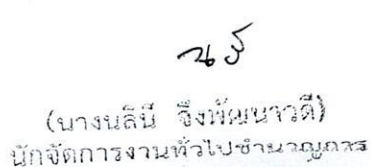 (นางนลินี จึงพัฒนาวดี)
นักจัดการงานทั่วไปชำนาญการ